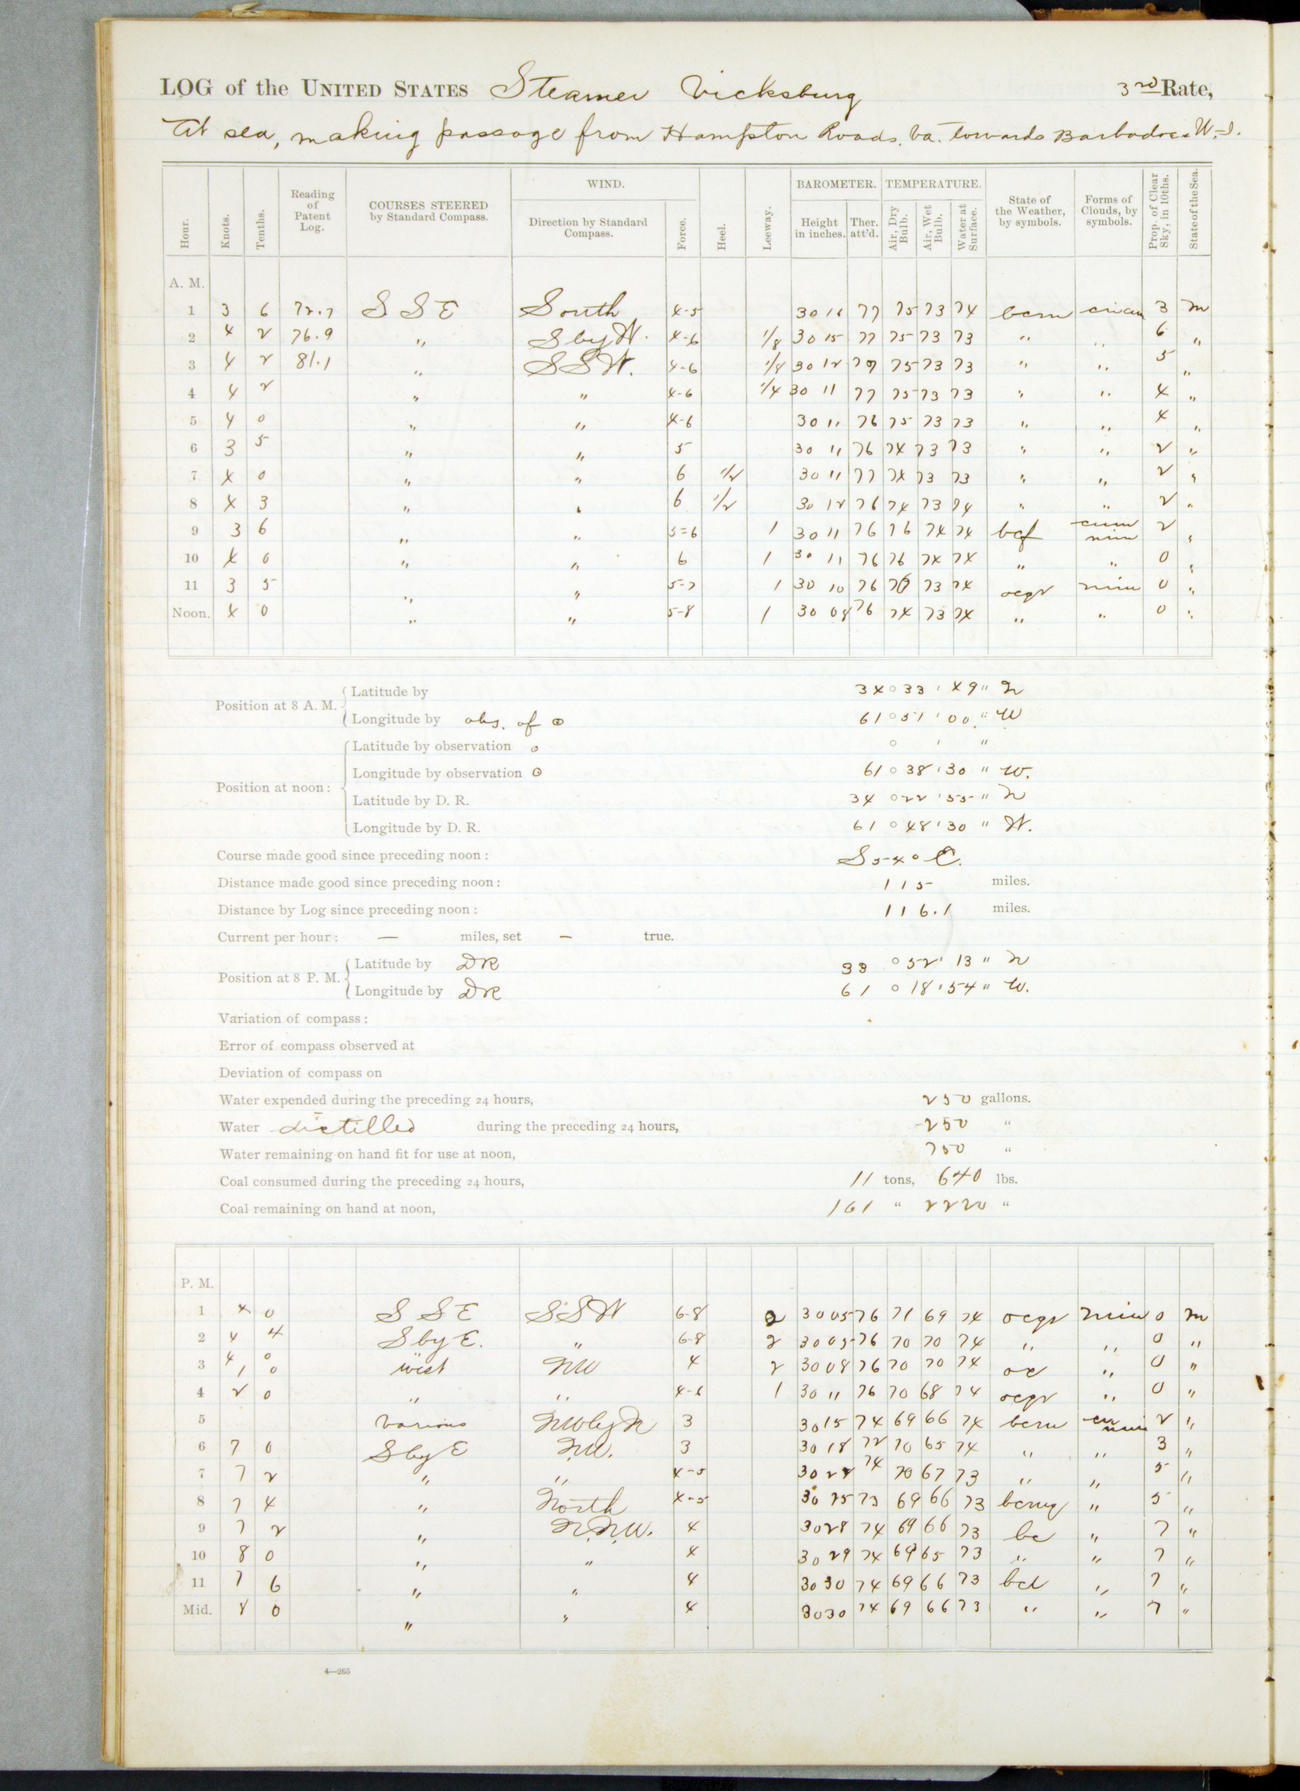 LOG of the UNITED STATES Steamer Vicksburg 3rd Rate,
At sea, making passage from Hampton Roads, Va. towards Barbados W.I.
Hour. Knots. Tenths. Reading of Patent Log. COURSES STEERED by Standard Compass. WIND. Direction by Standard Compass. Force. Heel. Leeway. BAROMETER. Height in inches. Ther. att'd. TEMPERATURE. Air, Dry Bulb. Air, Wet Bulb. Water at Surface. State of the Weather, by symbols. Forms of Clouds, by symbols. Prop. of Clear Sky, in 10ths. State of the Sea.
A. M.
1 3 6 72.7 SSE South 4-5 30 11 77 75 73 74 bcm 3 m
2 4 2 76.9 " S by W. 4-6 1/8 30 15 77 75 73 73 " " 6 "
3 4 2 81.1 " SSW. 4-6 1/4 30 12 77 75 73 73 " " 5 "
4 4 2 " " 4-6 1/4 30 11 77 75 73 73 " " 4 "
5 4 0 " " 4-6 30 11 76 75 73 73 " " 4 "
6 3 5 " " 5 30 11 76 74 73 73 " " 2 "
7 4 0 " " 6 1/2 30 11 77 74 73 73 " " 2 "
8 4 3 " " 6 1/2 30 12 76 74 73 74 " " 2 "
9 3 6 " " 5=6 1 30 11 76 76 74 74 bcf cum nim 2 "
10 4 0 " " 6 1 30 11 76 76 74 74 " " 0 "
11 3 5 " " 5-7 1 30 10 76 76 73 74 ocqr nim 0 "
Noon. 4 0 " " 5-8 1 30 08 76 74 73 74 " " 0 "
Position at 8 A. M. Latitude by 34° 33' 49" N
Longitude by obs. of ⊙ 61° 51' 00" W
Position at noon: Latitude by observation ° ' "
Longitude by observation ⊙ 61° 38' 30" W.
Latitude by D. R. 34° 22' 55" N
Longitude by D. R. 61° 48' 30" W.
Course made good since preceding noon: S 54° E.
Distance made good since preceding noon: 115 miles.
Distance by Log since preceding noon: 116.1 miles.
Current per hour: — miles, set — true.
Position at 8 P. M. Latitude by DR 33° 52' 13" N
Longitude by DR 61° 18' 54" W.
Variation of compass:
Error of compass observed at
Deviation of compass on
Water expended during the preceding 24 hours, 250 gallons.
Water distilled during the preceding 24 hours, 250 "
Water remaining on hand fit for use at noon, 750 "
Coal consumed during the preceding 24 hours, 11 tons, 640 lbs.
Coal remaining on hand at noon, 161 " 2220 "
P. M.
1 4 0 SSE SSW 6-8 2 30 05 76 71 69 74 ocqr nim 0 m
2 4 4 S by E. " 6-8 2 30 05 76 70 70 74 " " 0 "
3 4 0 1 0 " west NW 4 2 30 08 76 70 70 74 oc " 0 "
4 2 0 " " 4-6 1 30 11 76 70 68 74 ocqr " 0 "
5 Various NW by N 3 30 15 74 69 66 74 bcm cu nim 2 "
6 7 0 S by E N.W. 3 30 18 72 70 65 74 " " 3 "
7 7 2 " " 4-5 30 24 74 70 67 73 " " 5 "
8 7 4 " North 4-5 30 25 73 69 66 73 bcmq " 5 "
9 7 2 " N.N.W. 4 30 28 74 69 66 73 bc " 7 "
10 8 0 " " 4 30 29 74 69 65 73 " " 7 "
11 7 6 " " 4 30 30 74 69 66 73 bcl " 7 "
Mid. 8 0 " " 4 30 30 74 69 66 73 " " 7 "
4—265